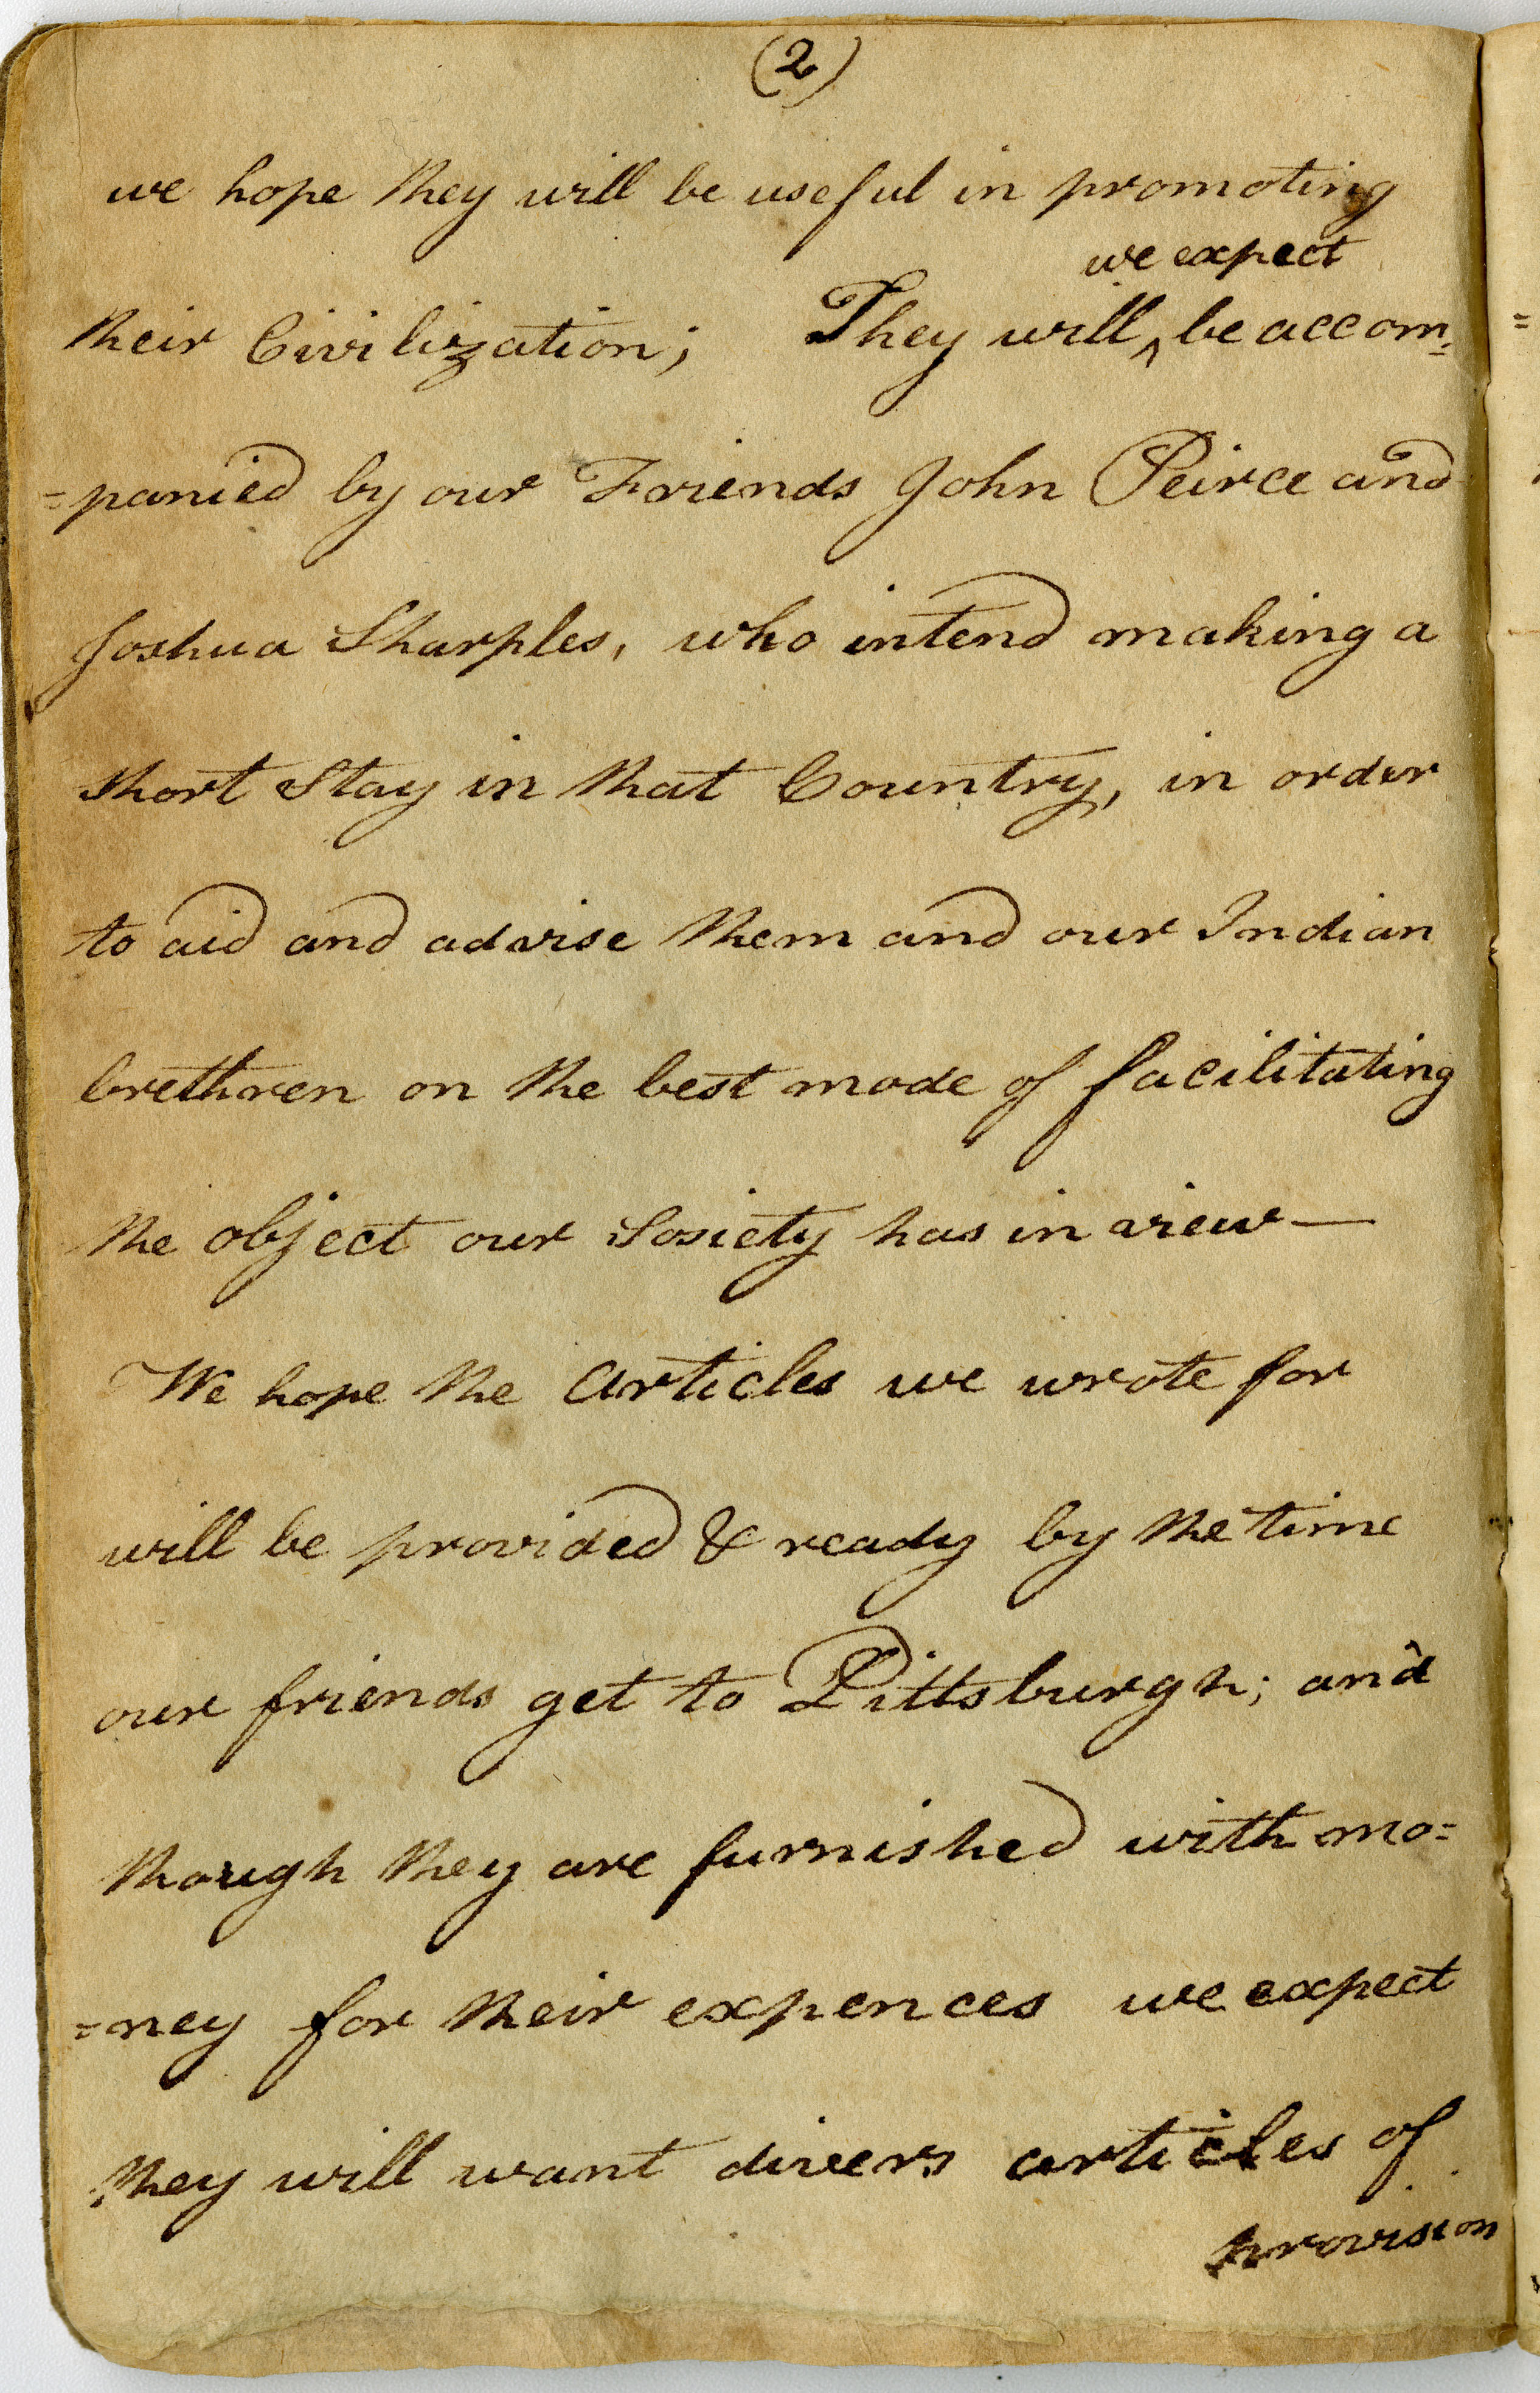 (2)
we hope they will be useful in promoting
we expect
their Civilization; They will ^ be accom=
=panied by our Friends John Peirce and
Joshua Sharples, who intend making a
short Stay in that Country, in order
to aid and advise them and our Indian
brethren on the best mode of facilitating
the object our Sosiety has in view—
We hope the Articles we wrote for
will be provided & ready by the time
our friends get to Pittsburgh; and
though they are furnished with mo=
=ney for their expences we expect
they will want divers articles of
provision